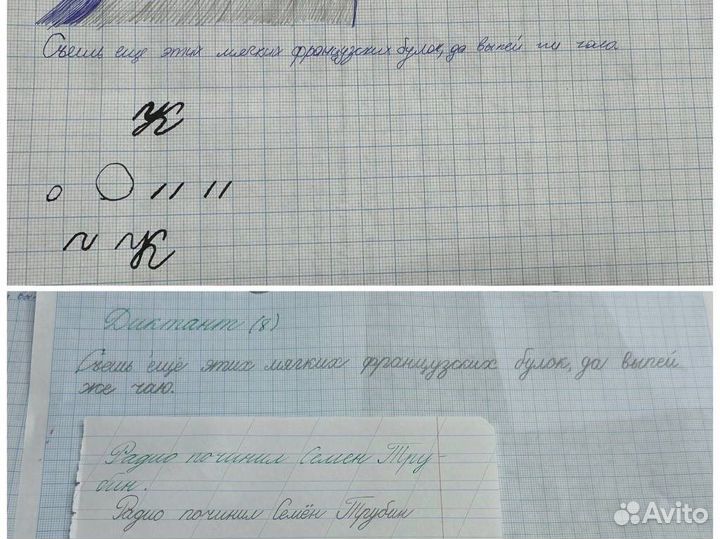 Съешь еще этих мягких французских булок, да выпей
К
о О // //
К
Диктант (8)
Съешь ещё этих мягких французских булок, да выпей
же чаю.
Радио починил Семен Тру-
бин.
Радио починил Семён Трубин
Avito